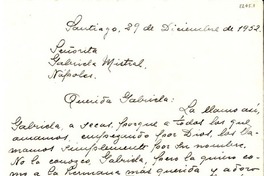 Santiago, 29 de Diciembre de 1952.
Señorita
Gabriela Mistral.
Nápoles.
Querida Gabriela:
La llamo así,
Gabriela, a secas, porque a todos los que
amamos, empezando por Dios, los lla-
mamos simplemente por su nombre.
No la conozco, Gabriela, pero la quiero co-
mo a la hermana más querida y adoro